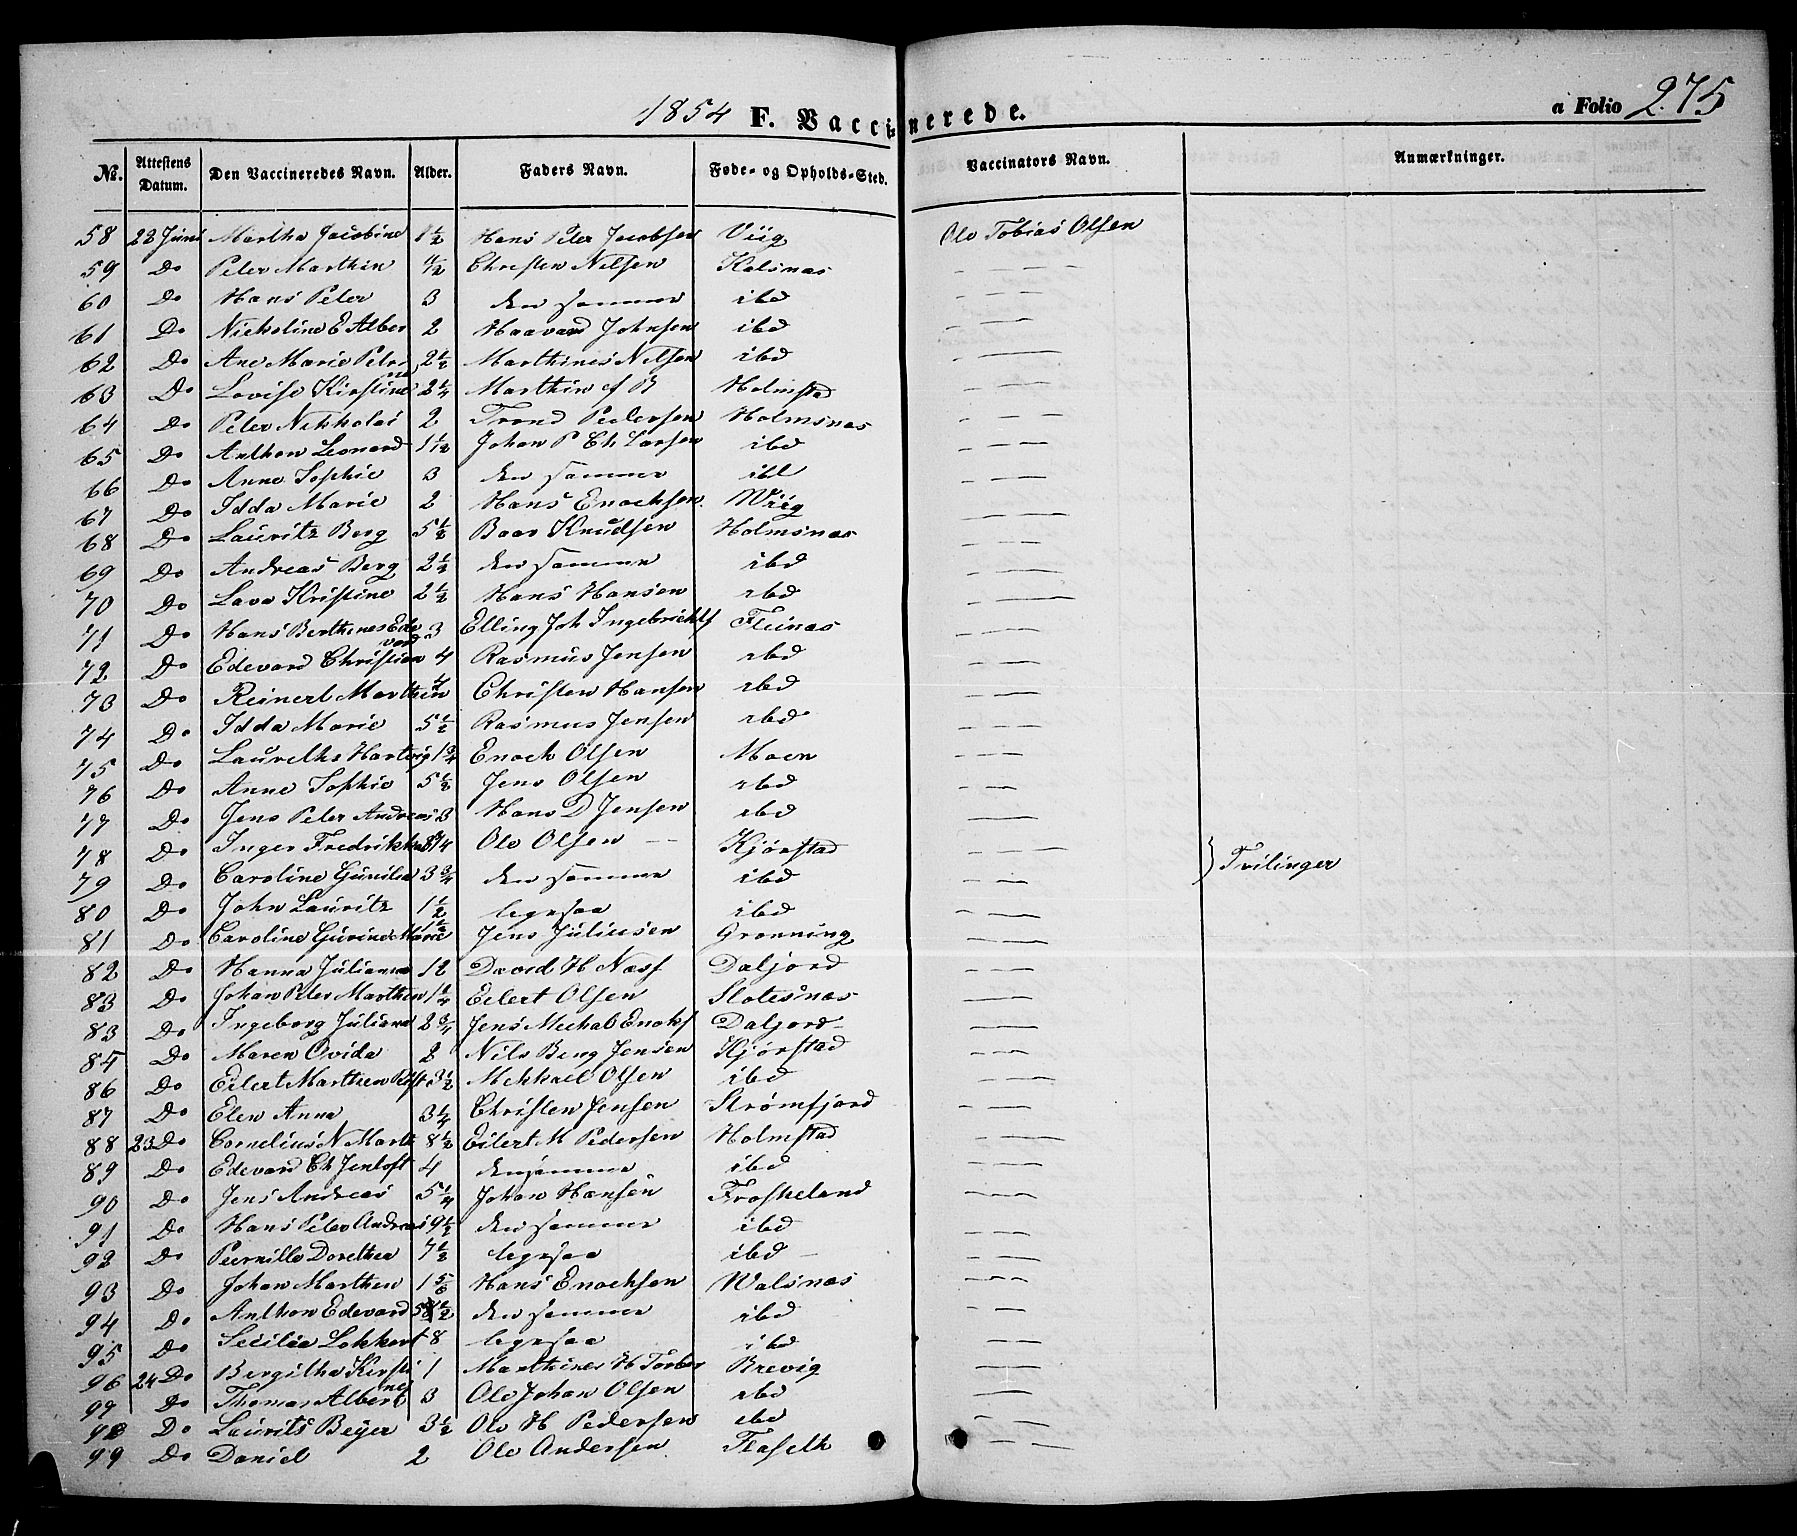 1854 F. Vaccinerede. a Folio 275
No. Attestens Datum. Den Vaccineredes Navn. Alder. Faders Navn. Føde- og Opholds-Sted. Vaccinators Navn. Anmærkninger.
58 22 Juni Martha Jacobine 1½ Hans Peter Jacobsen Viig Ole Tobias Olsen
59 Do Peter Marthin ½ Christen Nilsen Kalsnæs — — —
60 Do Hans Peter 3 den samme ibd — — —
61 Do Nicholine E Alber 2 Haavard Johnsen ibd — — —
62 Do Ane Marie Petri 2½ Marthines Nilsen ibd — — —
ne
63 Do Lovise Kirstine 2¼ Marthin Holmstad — — —
64 Do Peter Nikholai 2 Trond Pedersen Holmsnæs — — —
65 Do Anthon Leonard 1½ Johan P Ch Larsen ibd — — —
66 Do Anne Sophie 3 den samme ibd — — —
67 Do Idda Marie 2 Hans Enochsen Wiig — — —
68 Do Lauritz Berg 5½ Baar Knudsen Holmsnæs — — —
69 Do Andreas Berg 2½ den samme ibd — — —
70 Do Lava Kristine 2½ Hans Hansen ibd — — —
71 Do Hans Berthines Ede 3 Elling Joh Ingebrichts Fleinæs — — —
vard
72 Do Edevard Christian 4 Rasmus Jensen ibd — — —
73 Do Reinert Marthin Christen Hansen ibd — — —
74 Do Idda Marie 5½ Rasmus Jensen ibd — — —
75 Do Hartvig 1¾ Enoch Olsen Moen — — —
76 Do Anne Sophie 5½ Jens Olsen ibd — — —
77 Do Jens Peter Andreas 3 Hans D Jensen ibd — — —
78 Do Inger Fredrikka Ole Olsen — Kjørstad — — — } Tvilinger
79 Do Caroline Gunilia 3¾ den samme ibd — —
80 Do John Lauritz 1½ legesaa ibd — — —
81 Do Caroline Gurine Marie 1½ Jens Juliusen Grønning — — —
82 Do Hanna Julianna 12 David H Næss Daljord — — —
83 Do Johan Peter Marthin 1¼ Eilert Olsen Slotesnæs — — —
83 Do Ingeborg Juliana 2¾ Jens Mechal Enoks Daljord — — —
84 Do Maren Ovida 2 Nils Berg Jensen Kjørstad — — —
86 Do Eilert Marthin 3½ Mekkael Olsen ibd — — —
87 Do Elen Anna 3¼ Christen Jensen Strømfjord — — —
88 23 Do Cornelius N Marth 8½ Eilert M Pedersen Holmstad — — —
89 Do Edevard Ch Jentoft 4 den samme ibd — — —
90 Do Jens Andreas 5¼ Johan Hansen Froskeland — — —
91 Do Hans Peter Andreas 9½ den samme ibd — — —
92 Do Pernille Dorethea 7½ legesaa ibd — — — —
93 Do Johan Marthin 1 5/6 Hans Enochsen Walsnæs — — —
94 Do Anthon Edevard 5½ den samme ibd — —
95 Do Secilia Lokkert 8 legesaa ibd — — —
96 24 Do Bergitha Kirsti 1 Marthines H Torber Brevig — — —
ne
97 Do Thomas Albert 3 Ole Johan Olsen ibd — — —
98 Do Laurits Beyer 3½ Ole H Pedersen ibd — — —
99 Do Daniel 2 Ole Andersen Flaseth — — —